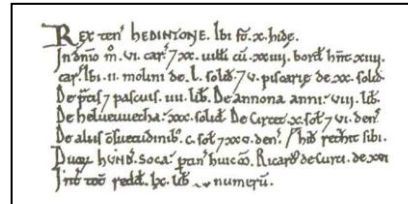 Rex ten' HEDINTONE. Ibi sт̃. x. hidę.
In dn̄io sт̃. vi. car̃. ⁊ xx. uilłi cū. xxiiii. bord̃ hn̄t xiiii.
car̃. Ibi. ii. molini de. l. solid̃. ⁊ v. piscarię de xx. solid̃
De p̃tis ⁊ pascuis. iiii. lib̃. De annona anni. viii. lib̃.
De helueuuecha. xxx. solid̃. De circet x. sol̃ ⁊ vi. den̄.
De aliis c̄suetudinib⁊. c. sol̃ ⁊ xxv. den̄. hab̃ rechte sibi.
Duoꝝ HUND̃ soca huic m̄. Ricard⁊ de Curci. de xvi
Int̃ totū redd̃ lx. lib̃ numerū.